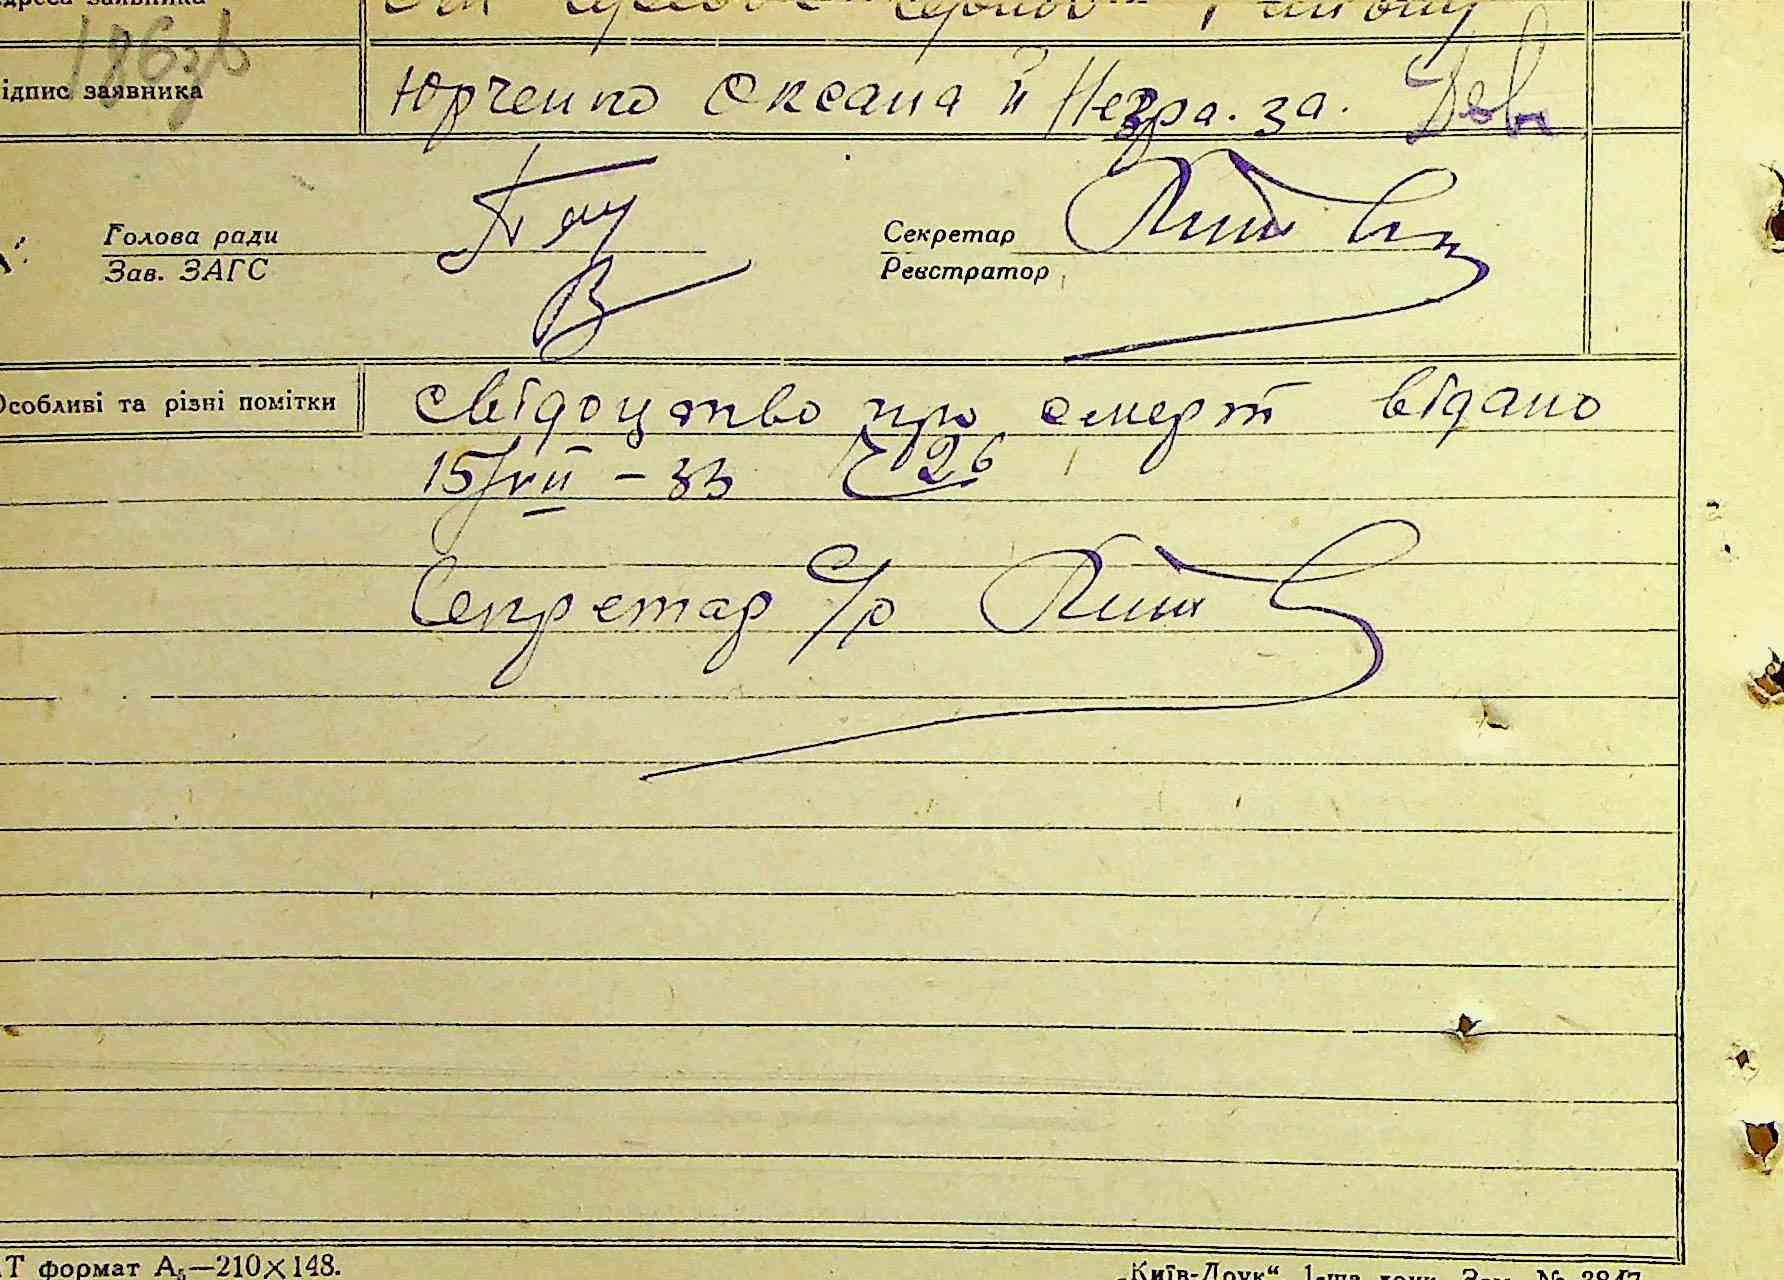 адреса заявника
186зв
ідпис заявника Юрченко Оксана й Незра. за.
Голова ради
Зав. ЗАГС
Секретар
Реєстратор
Особливі та різні помітки свідоцтво про смерт відано
15/VII – 33 № 26
Секретар с/р
Т формат А₅—210×148.
„Київ-Друк“ 1-ша друк. Зам. № 3847